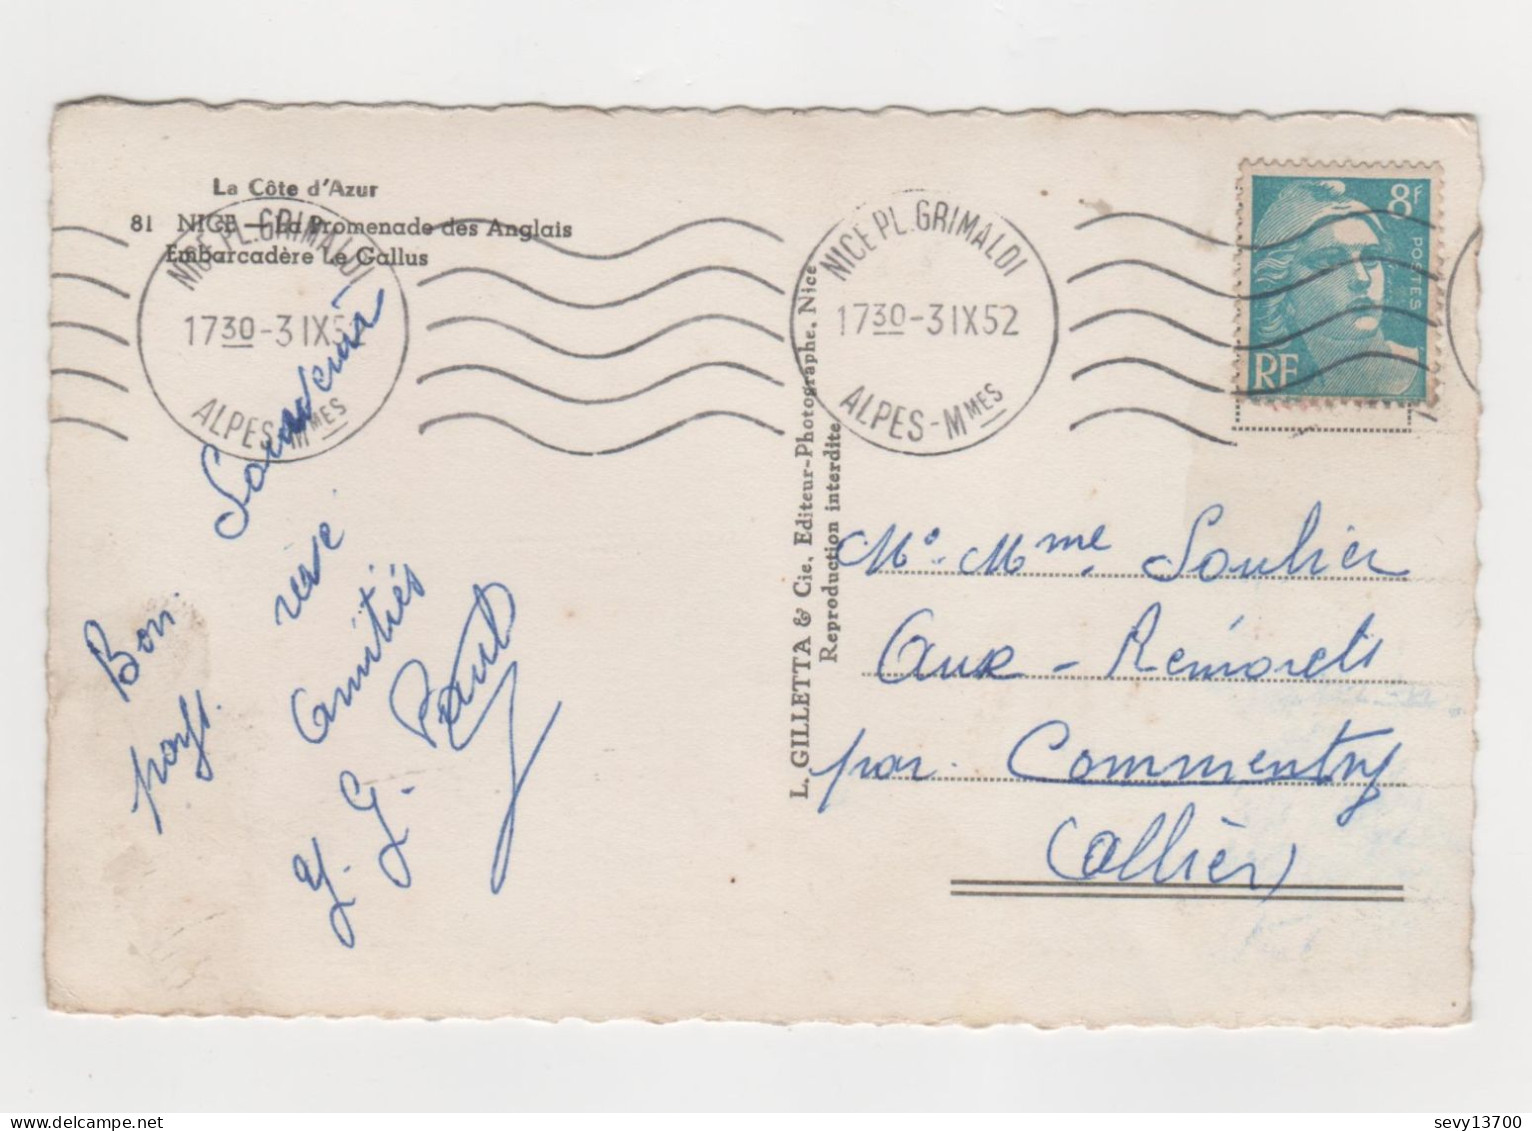 La Côte d'Azur
81 NICE — La Promenade des Anglais
Embarcadère Le Gallus
NICE PL. GRIMALDI
1730-3 IX 5
ALPES-MMES
NICE PL. GRIMALDI
1730-3 IX 52
ALPES-MMES
8F
POSTES
RF
L. GILLETTA & Cie, Editeur-Photographe, Nice
Reproduction interdite
Souvenir
Bon
amitiés
Y. G.
Mr. Mme. Soulier
aux - Remorets
par. Commentry
(Allier)
sevy13700